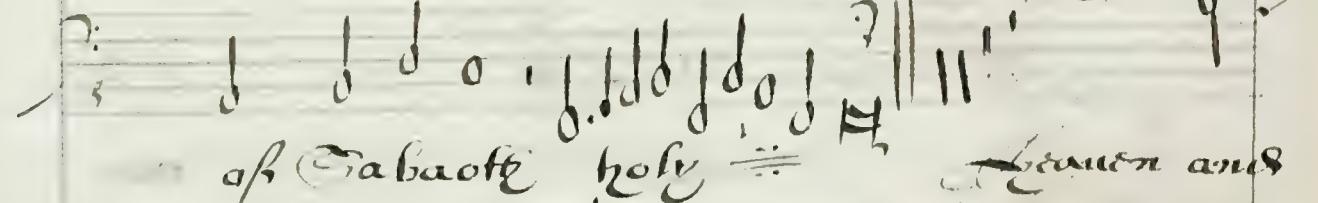 of Sabaoth holy heauen and